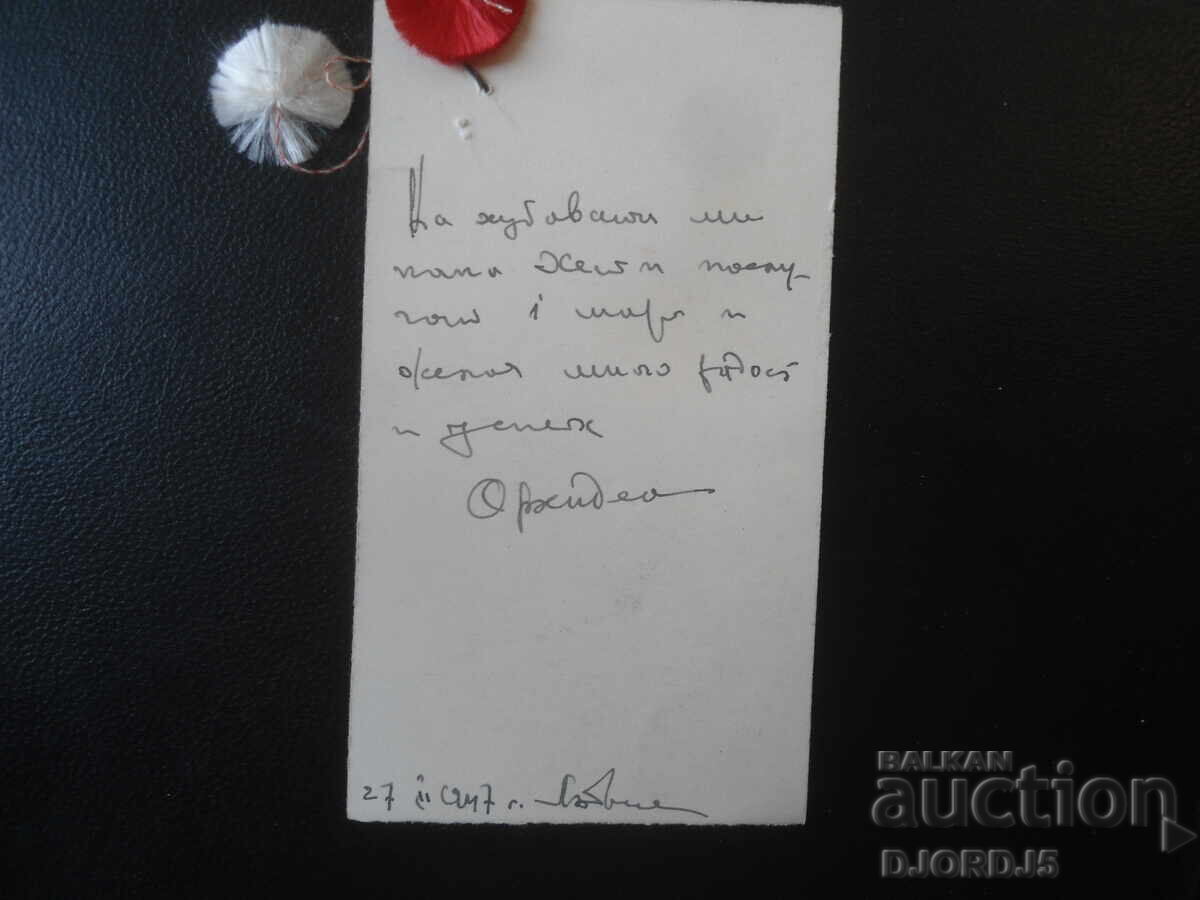 На хубавата ми
кака Жени по случ
1 март и
желая много радост
и успех
Орхидея
27 II 1947 г.
BALKAN
auction
DJORDJ5